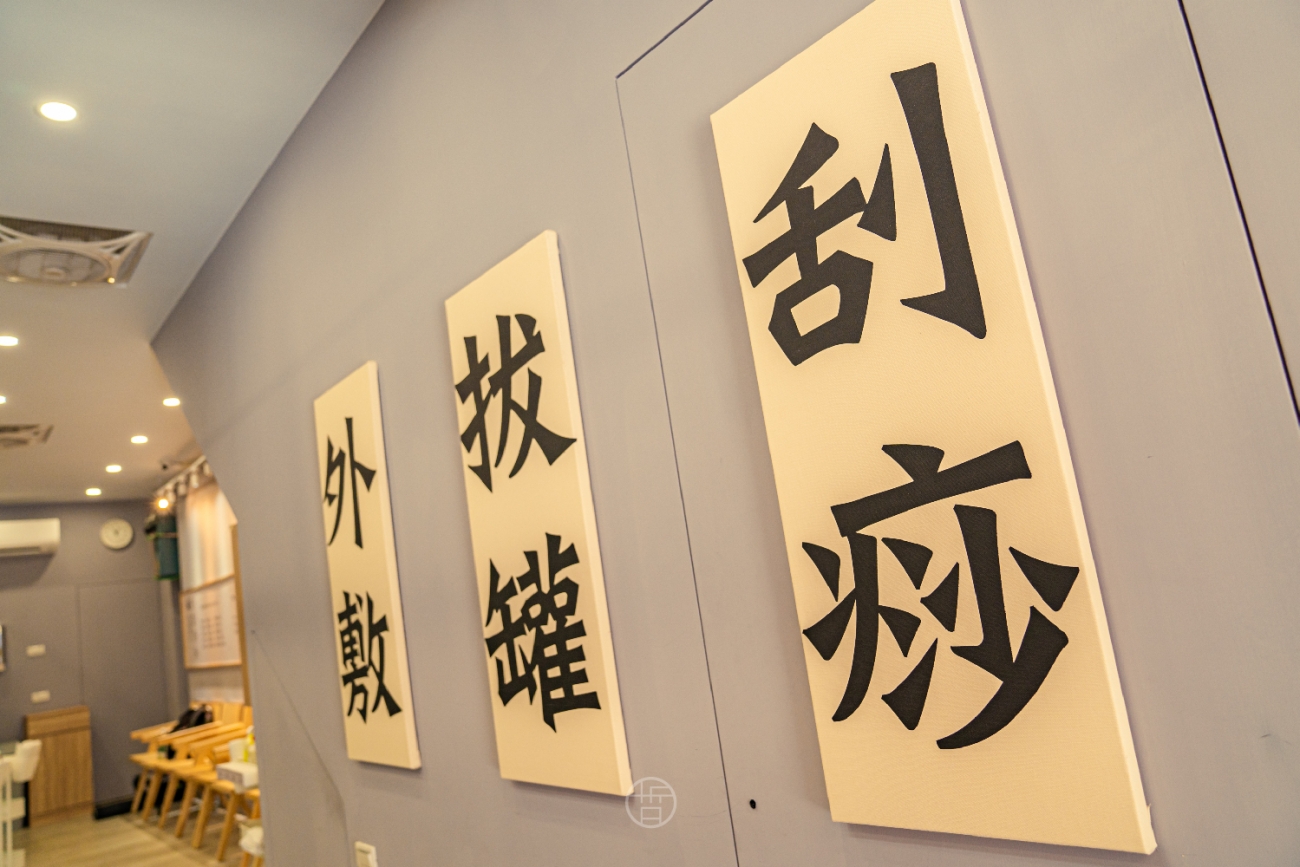 刮痧
拔罐
外敷
哲